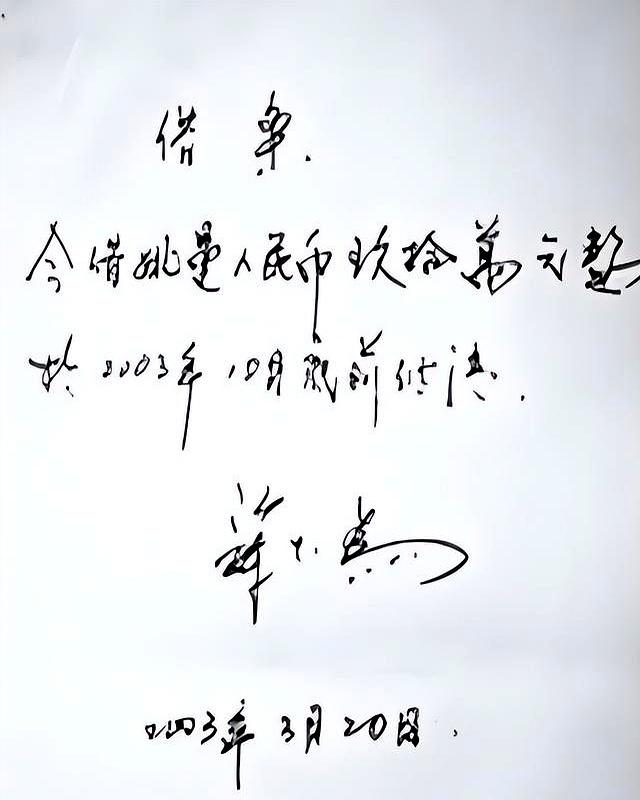 借条.
今借姚曼人民币玖拾萬元整
於2003年10月底前结清.
2003年3月20日.